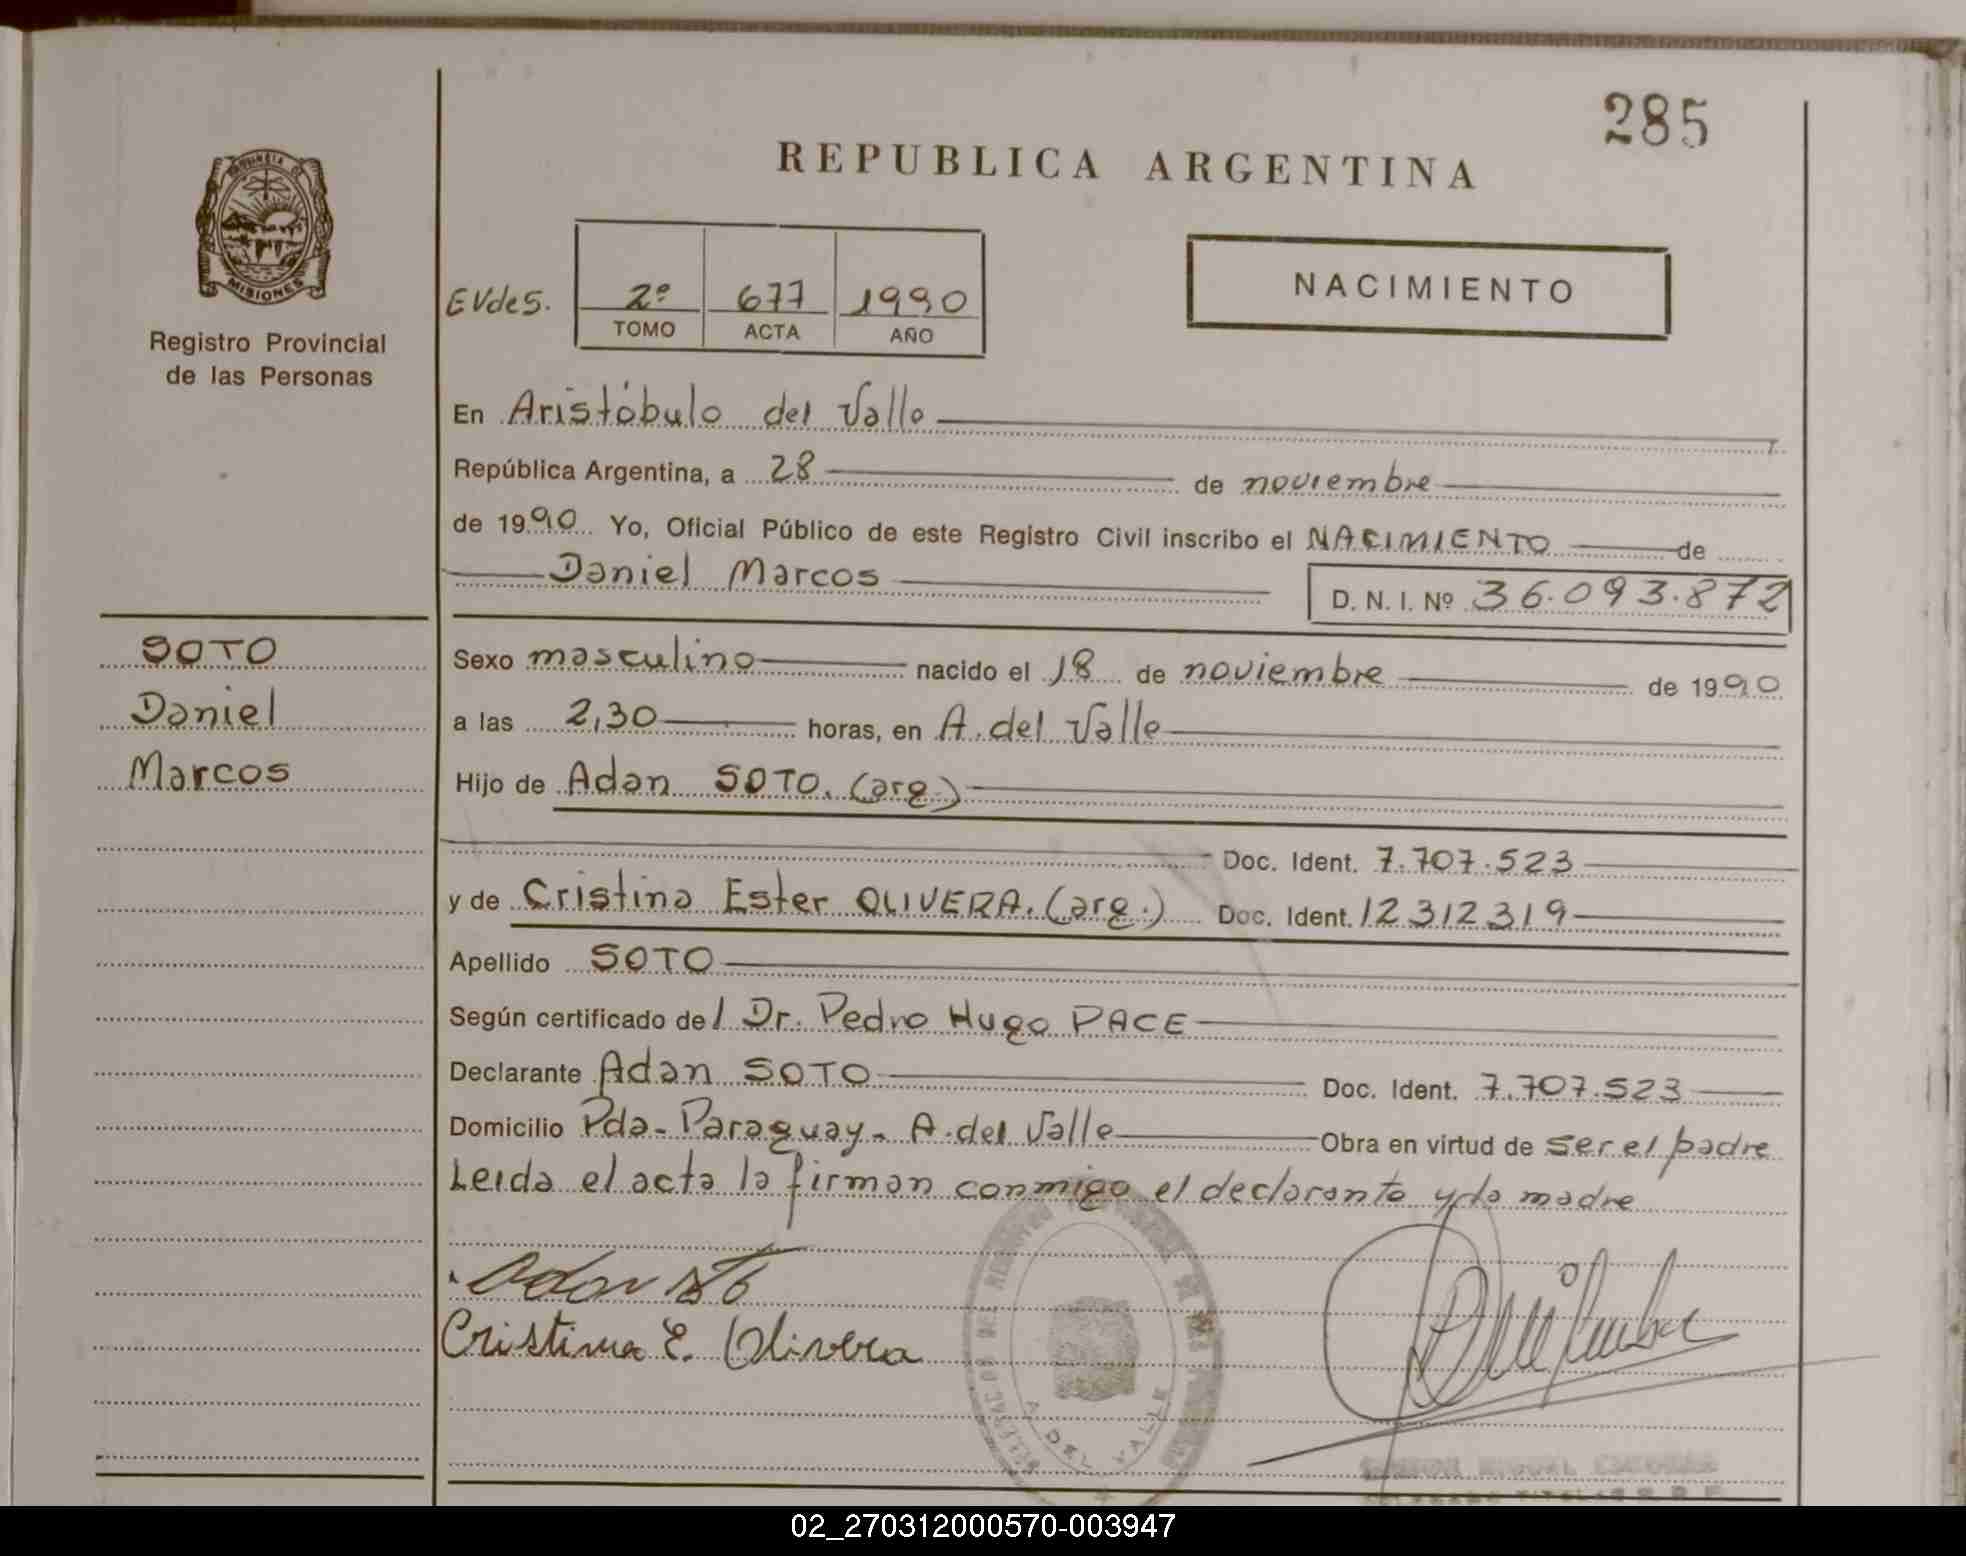 285
REPUBLICA ARGENTINA
PROVINCIA
MISIONES
Registro Provincial
de las Personas
EVdes.
2º 677 1990
TOMO ACTA AÑO
NACIMIENTO
En Aristóbulo del Valle
República Argentina, a 28 de noviembre
de 1990 Yo, Oficial Público de este Registro Civil inscribo el NACIMIENTO de
Daniel Marcos D. N. I. Nº 36.093.872
SOTO
Daniel
Marcos
Sexo masculino nacido el 18 de noviembre de 1990
a las 2,30 horas, en A. del Valle
Hijo de Adan SOTO. (arg.)
Doc. Ident. 7.707.523
y de Cristina Ester OLIVERA. (arg.) Doc. Ident. 12312319
Apellido SOTO
Según certificado del Dr. Pedro Hugo PACE
Declarante Adan SOTO Doc. Ident. 7.707.523
Domicilio Pda- Paraguay- A. del Valle Obra en virtud de ser el padre
Leida el acta la firman conmigo el declarante y la madre
Adan Soto
Cristina E. Olivera
A. DEL VALLE
02_270312000570-003947